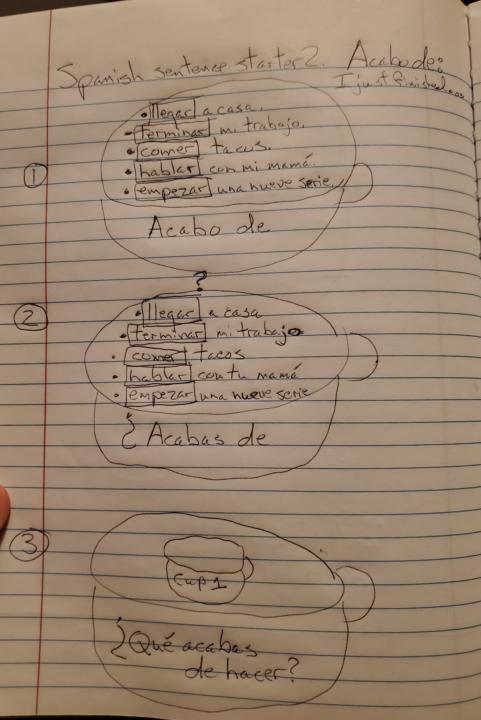 Spanish sentence starter 2. Acabo de:
I just finished...
①
• llegar a casa.
• terminar mi trabajo.
• comer tacos.
• hablar con mi mamá.
• empezar una nueve serie.
Acabo de
②
?
• llegar a casa
• terminar mi trabajo
• comer tacos
• hablar con tu mamá
• empezar una nueve serie
¿Acabas de
③
Cup 1
¿Qué acabas
de hacer?